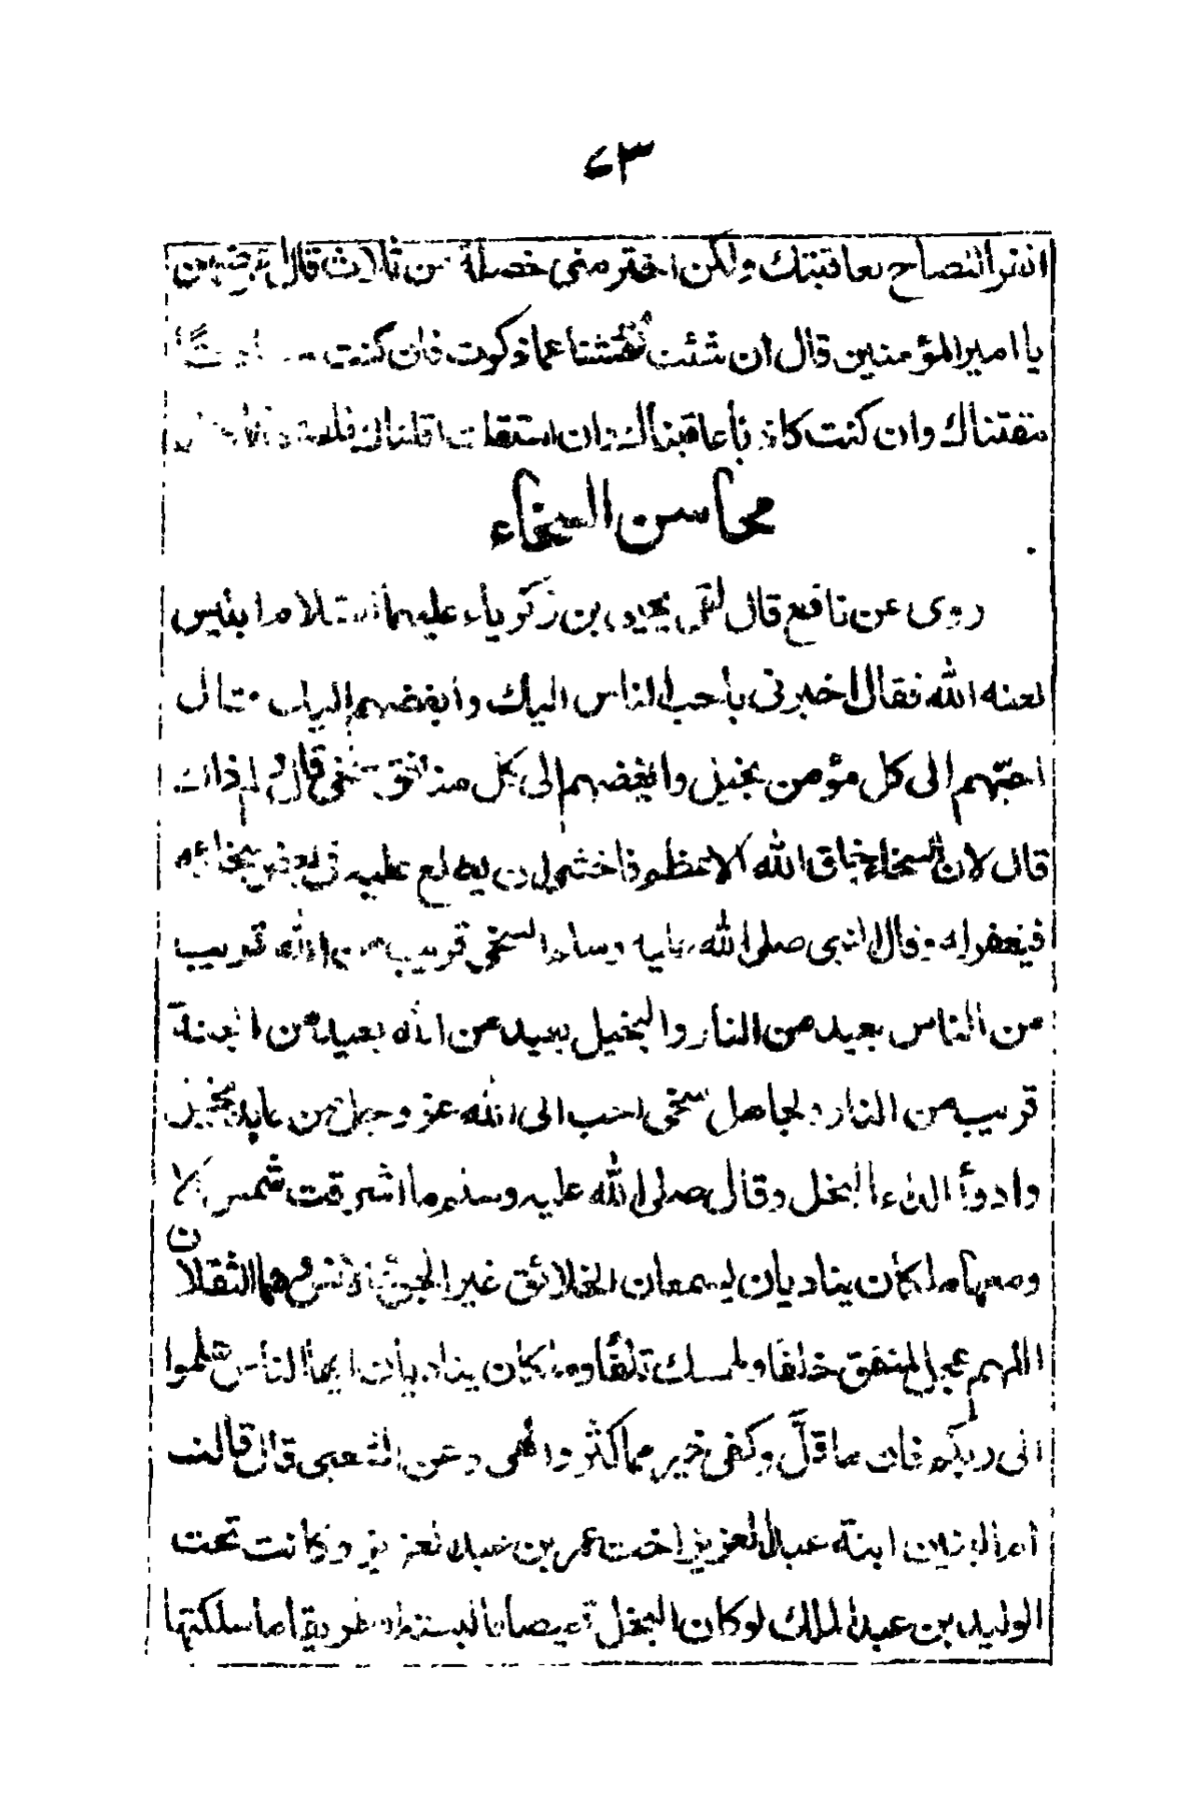 ٤٣
النصاح بعاقبتك ولكن اختر مني خصلة من ثلاث قال
يا امير المؤمنين قال ان شئت فتشنا عما ذكرت فان كنت
مقتناك وان كنت كاذبا عاقبناك وان استقلت اقلناك
محاسن السخاء
روى عن نافع قال لقى يحيى بن زكرياء عليهما السلام ابليس
لعنه الله فقال اخبرنى بأحب الناس اليك وأبغضهم اليك فقال
احبّهم الى كل مؤمن بخيل وابغضهم الى كل منافق سخى قال ولم ذاك
قال لان السخاء خلق الله الاعظم فاخشى ان يطلع عليه فى بعض سخاءه
فيغفر له وقال النبى صلى الله عليه وسلم السخى قريب من الله قريب
من الناس بعيد من النار والبخيل بعيد من الله بعيد من الجنة
قريب من النار ولجاهل سخى احب الى الله عز وجل من عابد بخيل
وادوأ الداء البخل وقال صلى الله عليه وسلم ما اشرقت شمس الا
ومعها ملكان يناديان يسمعان الخلائق غير الجن والانس وهما الثقلان
اللهم عجل لمنفق خلفا ولممسك تلفًا وملكان يناديان ايها الناس هلموا
الى ربكم فان ما قلّ وكفى خير مما كثر والهى وعن الشعبى قال قالت
ام البنين ابنة عبد العزيز اخت عمر بن عبد العزيز وكانت تحت
الوليد بن عبد الملك لو كان البخل قميصا ما لبسته او طريقا ما سلكتها